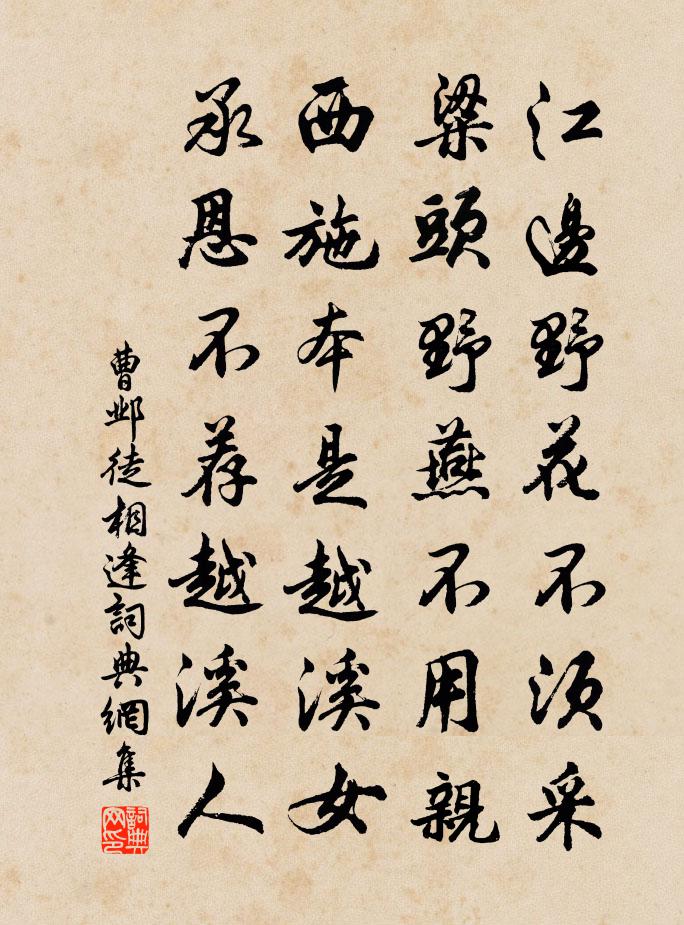 江邊野花不須采
梁頭野燕不用親
西施本是越溪女
承恩不荐越溪人
曹邺徒相逢詞典網集
詞典網印